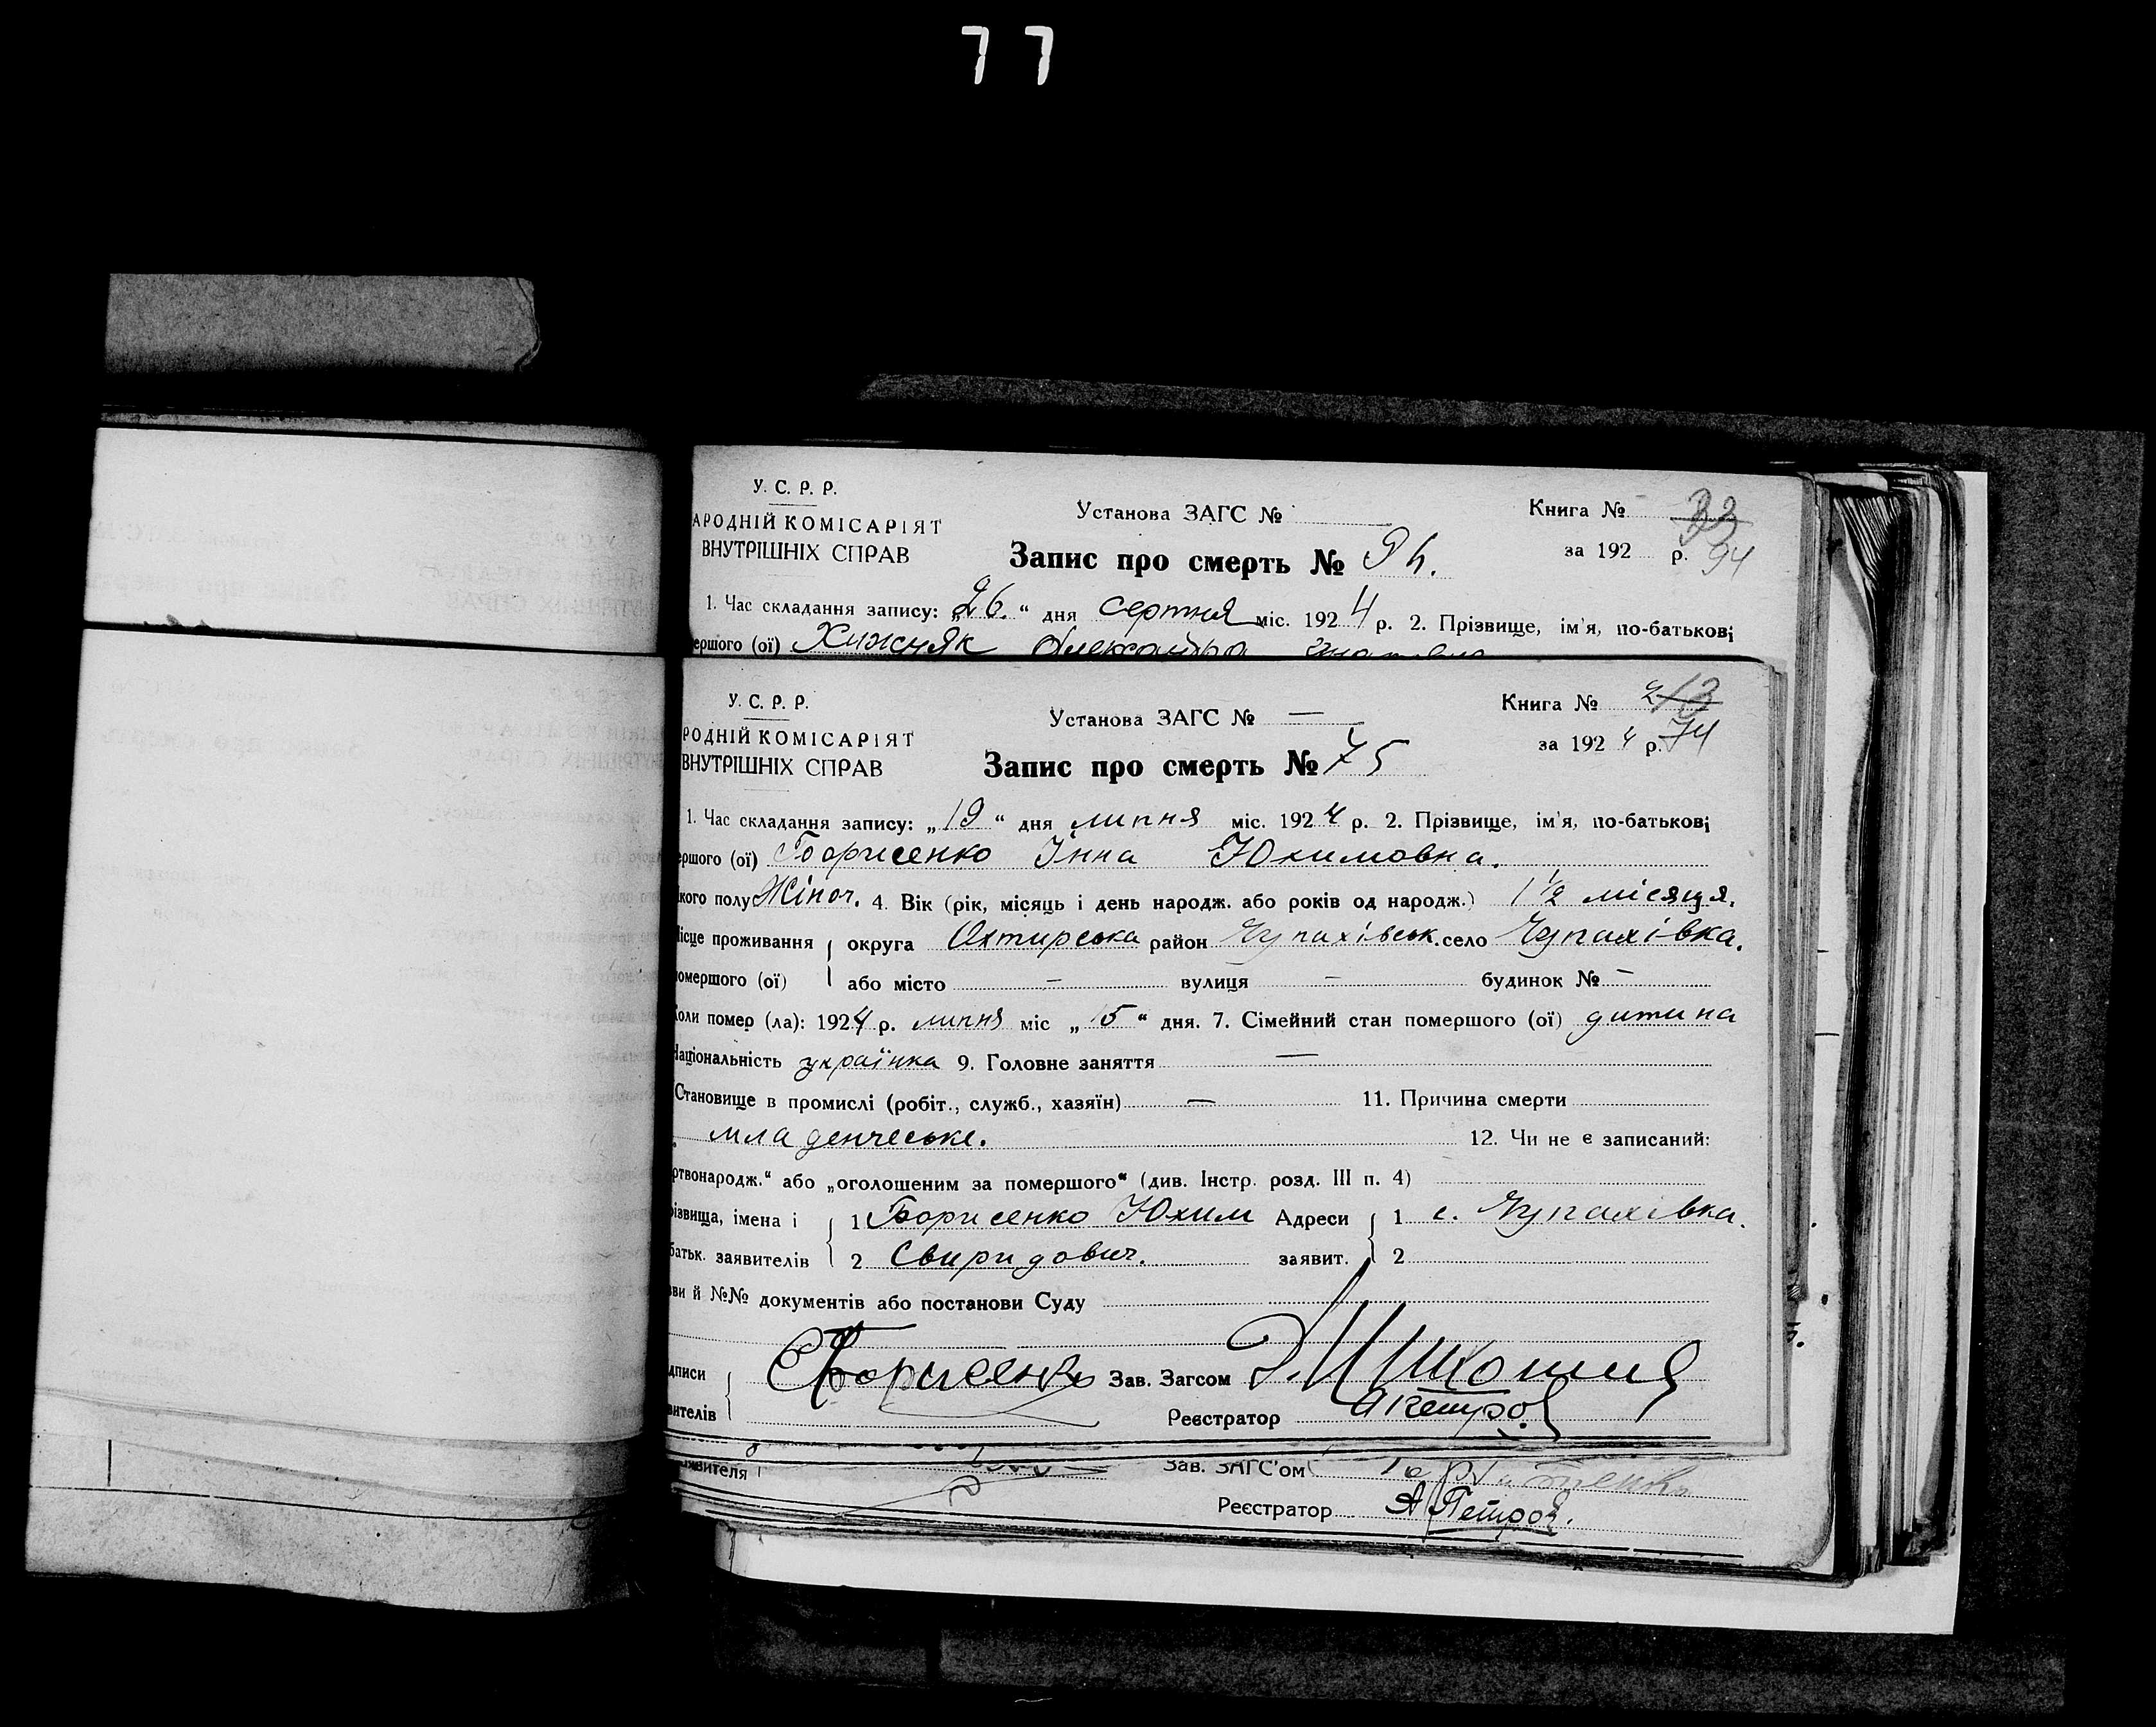 77
У. С. Р. Р.
АРОДНІЙ КОМІСАРІЯТ
ВНУТРІШНІХ СПРАВ
Установа ЗАГС №
Книга № 33
Запис про смерть № 94.
за 192 р. 94
1. Час складання запису: „26." дня серпня міс. 1924 р. 2. Прізвище, ім'я, по-батькові
ершого (ої) Хижняк Олександра
У. С. Р. Р.
РОДНІЙ КОМІСАРІЯТ
ВНУТРІШНІХ СПРАВ
Установа ЗАГС № —
Книга № 213
Запис про смерть № 75
за 1924 р. 74
1. Час складання запису: „19" дня липня міс. 1924 р. 2. Прізвище, ім'я, по-батькові
ершого (ої) Борисенко Інна Юхимовна.
кого полу Жіноч. 4. Вік (рік, місяць і день народж. або років од народж.) 1 1/2 місяця.
ісце проживання округа Охтирська район Чупахівськ. село Чупахівка.
омершого (ої) або місто — вулиця — будинок № —
оли помер (ла): 1924 р. липня міс „15" дня. 7. Сімейний стан помершого (ої) дитина
Національність українка 9. Головне заняття —
Становище в промислі (робіт., служб., хазяїн) — 11. Причина смерти
младенческе. 12. Чи не є записаний:
ртвонародж." або „оголошеним за помершого" (див. Інстр. розд. III п. 4)
ізвища, імена і 1 Борисенко Юхим Адреси 1 с. Чупахівка.
батьк. заявителів 2 Свиридович. заявит. 2
ви й №№ документів або постанови Суду
дписи Борисенко Зав. Загсом
вителів Реєстратор АПетров
явителя Зав. ЗАГС'ом
Реєстратор А Петров.